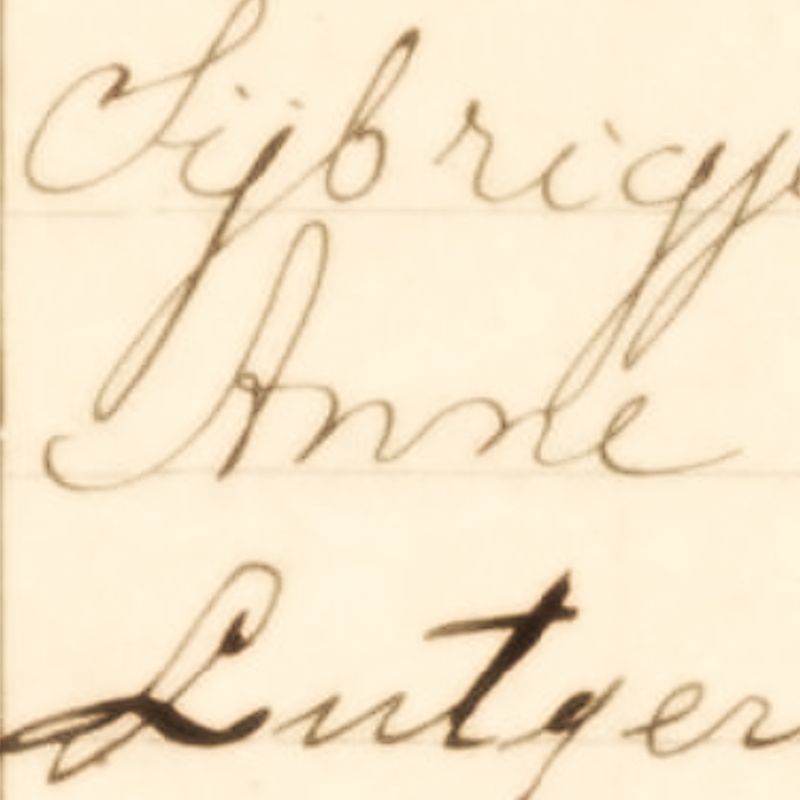 Sijbrigje
Anne
Lutger